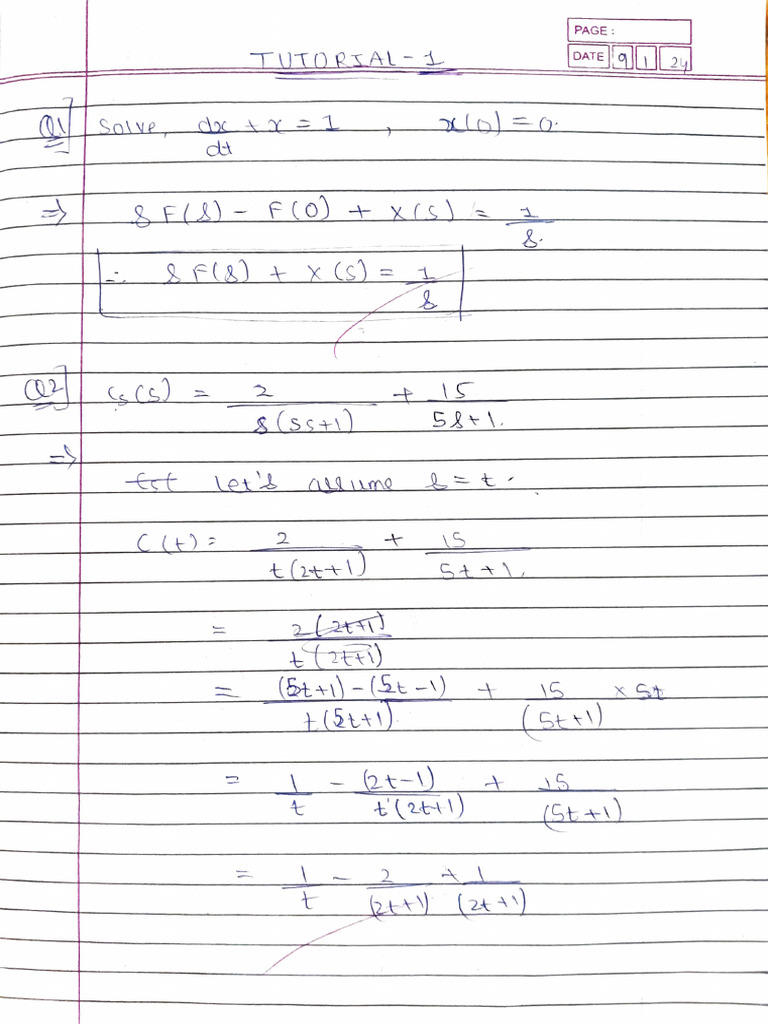 PAGE :
TUTORIAL - 1
DATE 9 1 24
Q1] Solve, dx/dt + x = 1 , x(0) = 0.
⇒ s F(s) - F(0) + X(s) = 1/s.
∴ s F(s) + X(s) = 1/s
Q2] G(s) = 2/s(5s+1) + 15/5s+1.
⇒
let's assume s = t.
C(t) = 2/t(2t+1) + 15/5t+1.
= 2(2t+1)/t(2t+1)
= (5t+1) - (5t-1)/t(5t+1) + 15/(5t+1) × 5t
= 1/t - (2t-1)/t(2t+1) + 15/(5t+1)
= 1/t - 2/(2t+1) + 1/(2t+1)